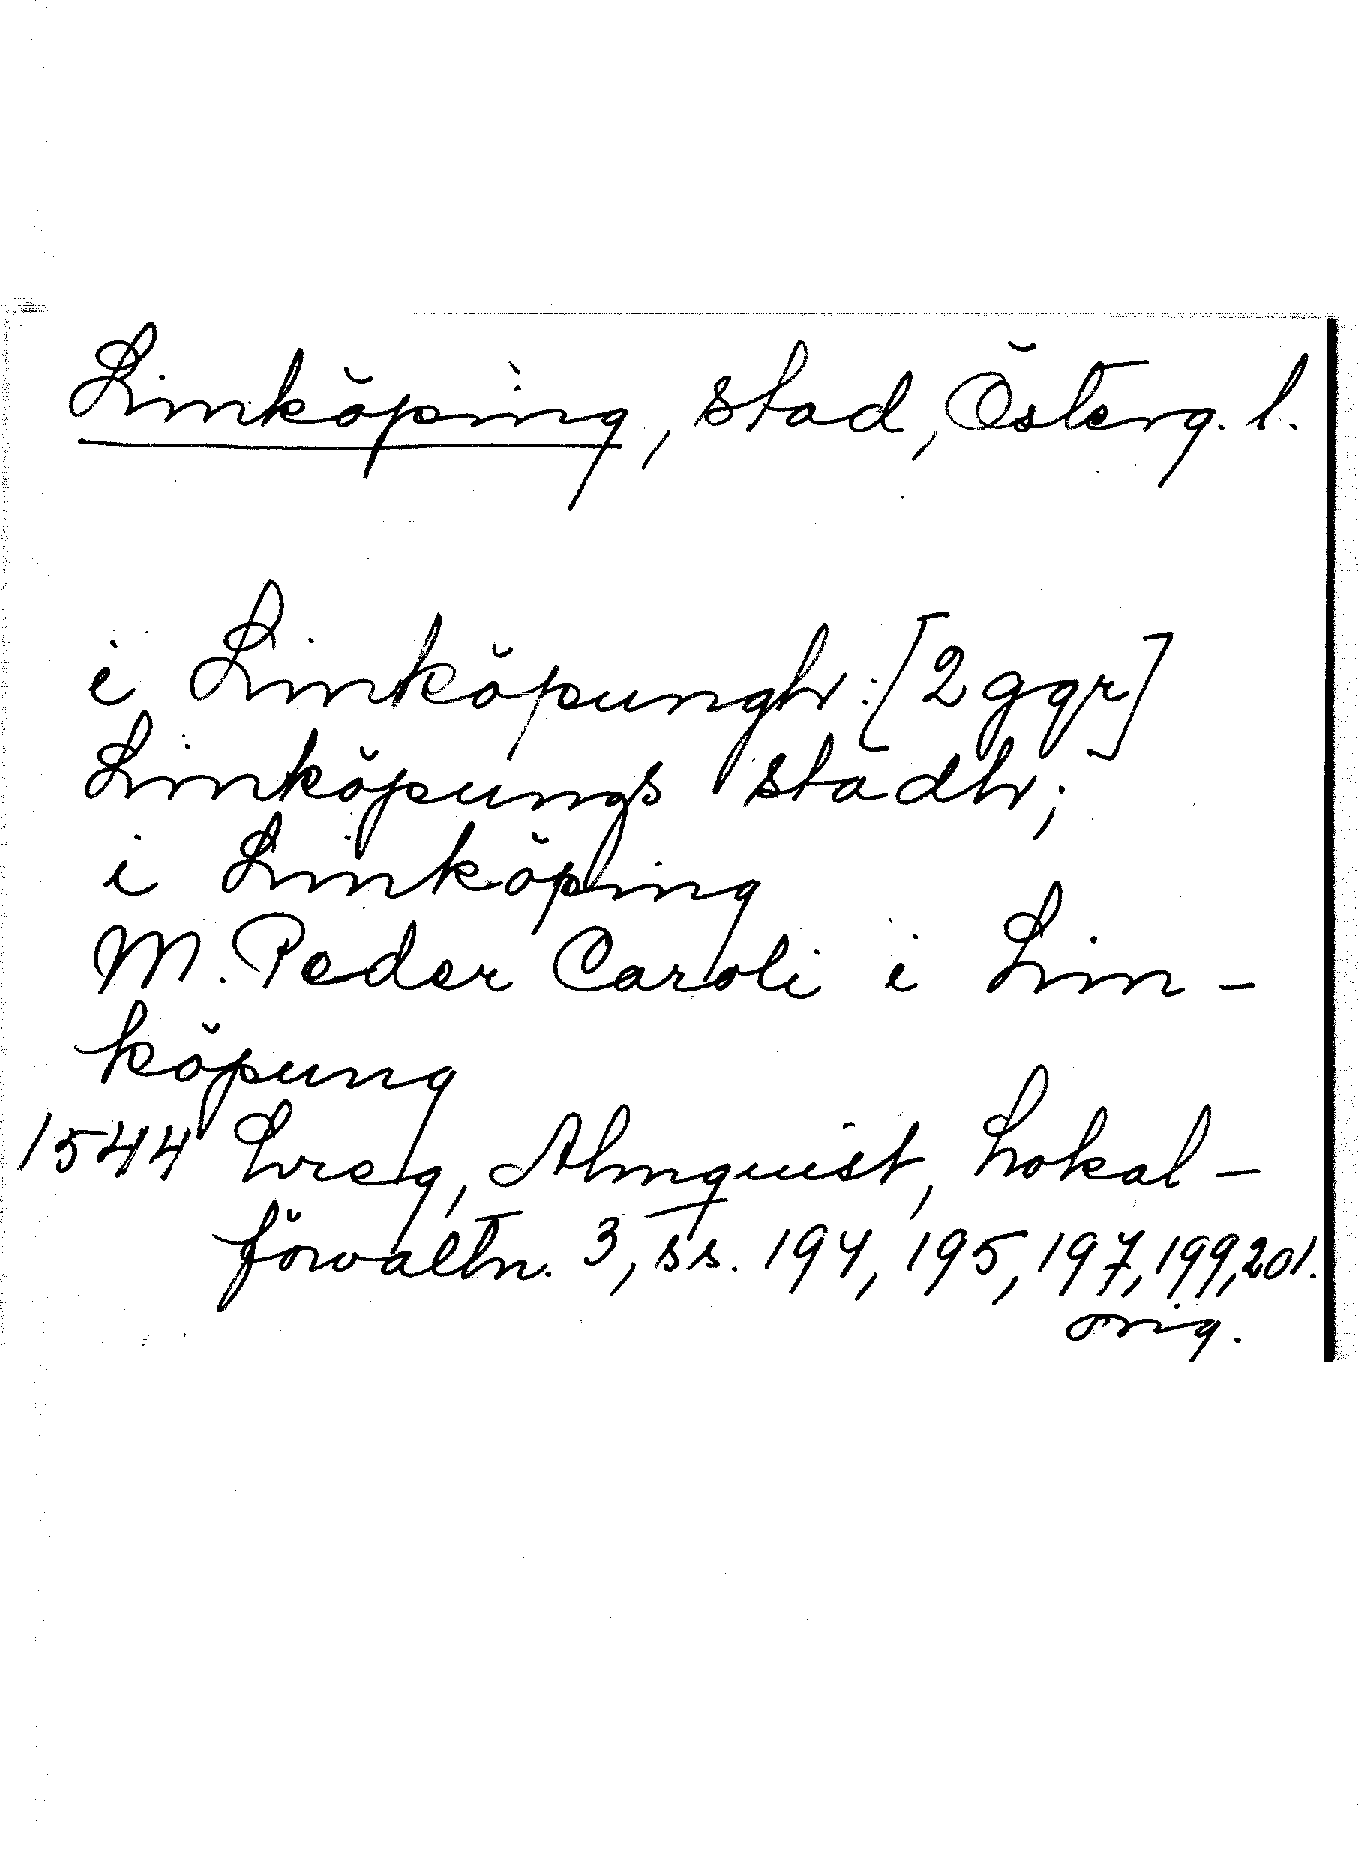 Linköping, stad, Österg. l.
i Linköpungh: [2 ggr]
Linköpungs stadh;
i Linköping
M. Peder Caroli i Lin-
köpung
1544 Lreg, Almquist, Lokal-
förvaltn. 3, ss. 194, 195, 197, 199, 201.
orig.